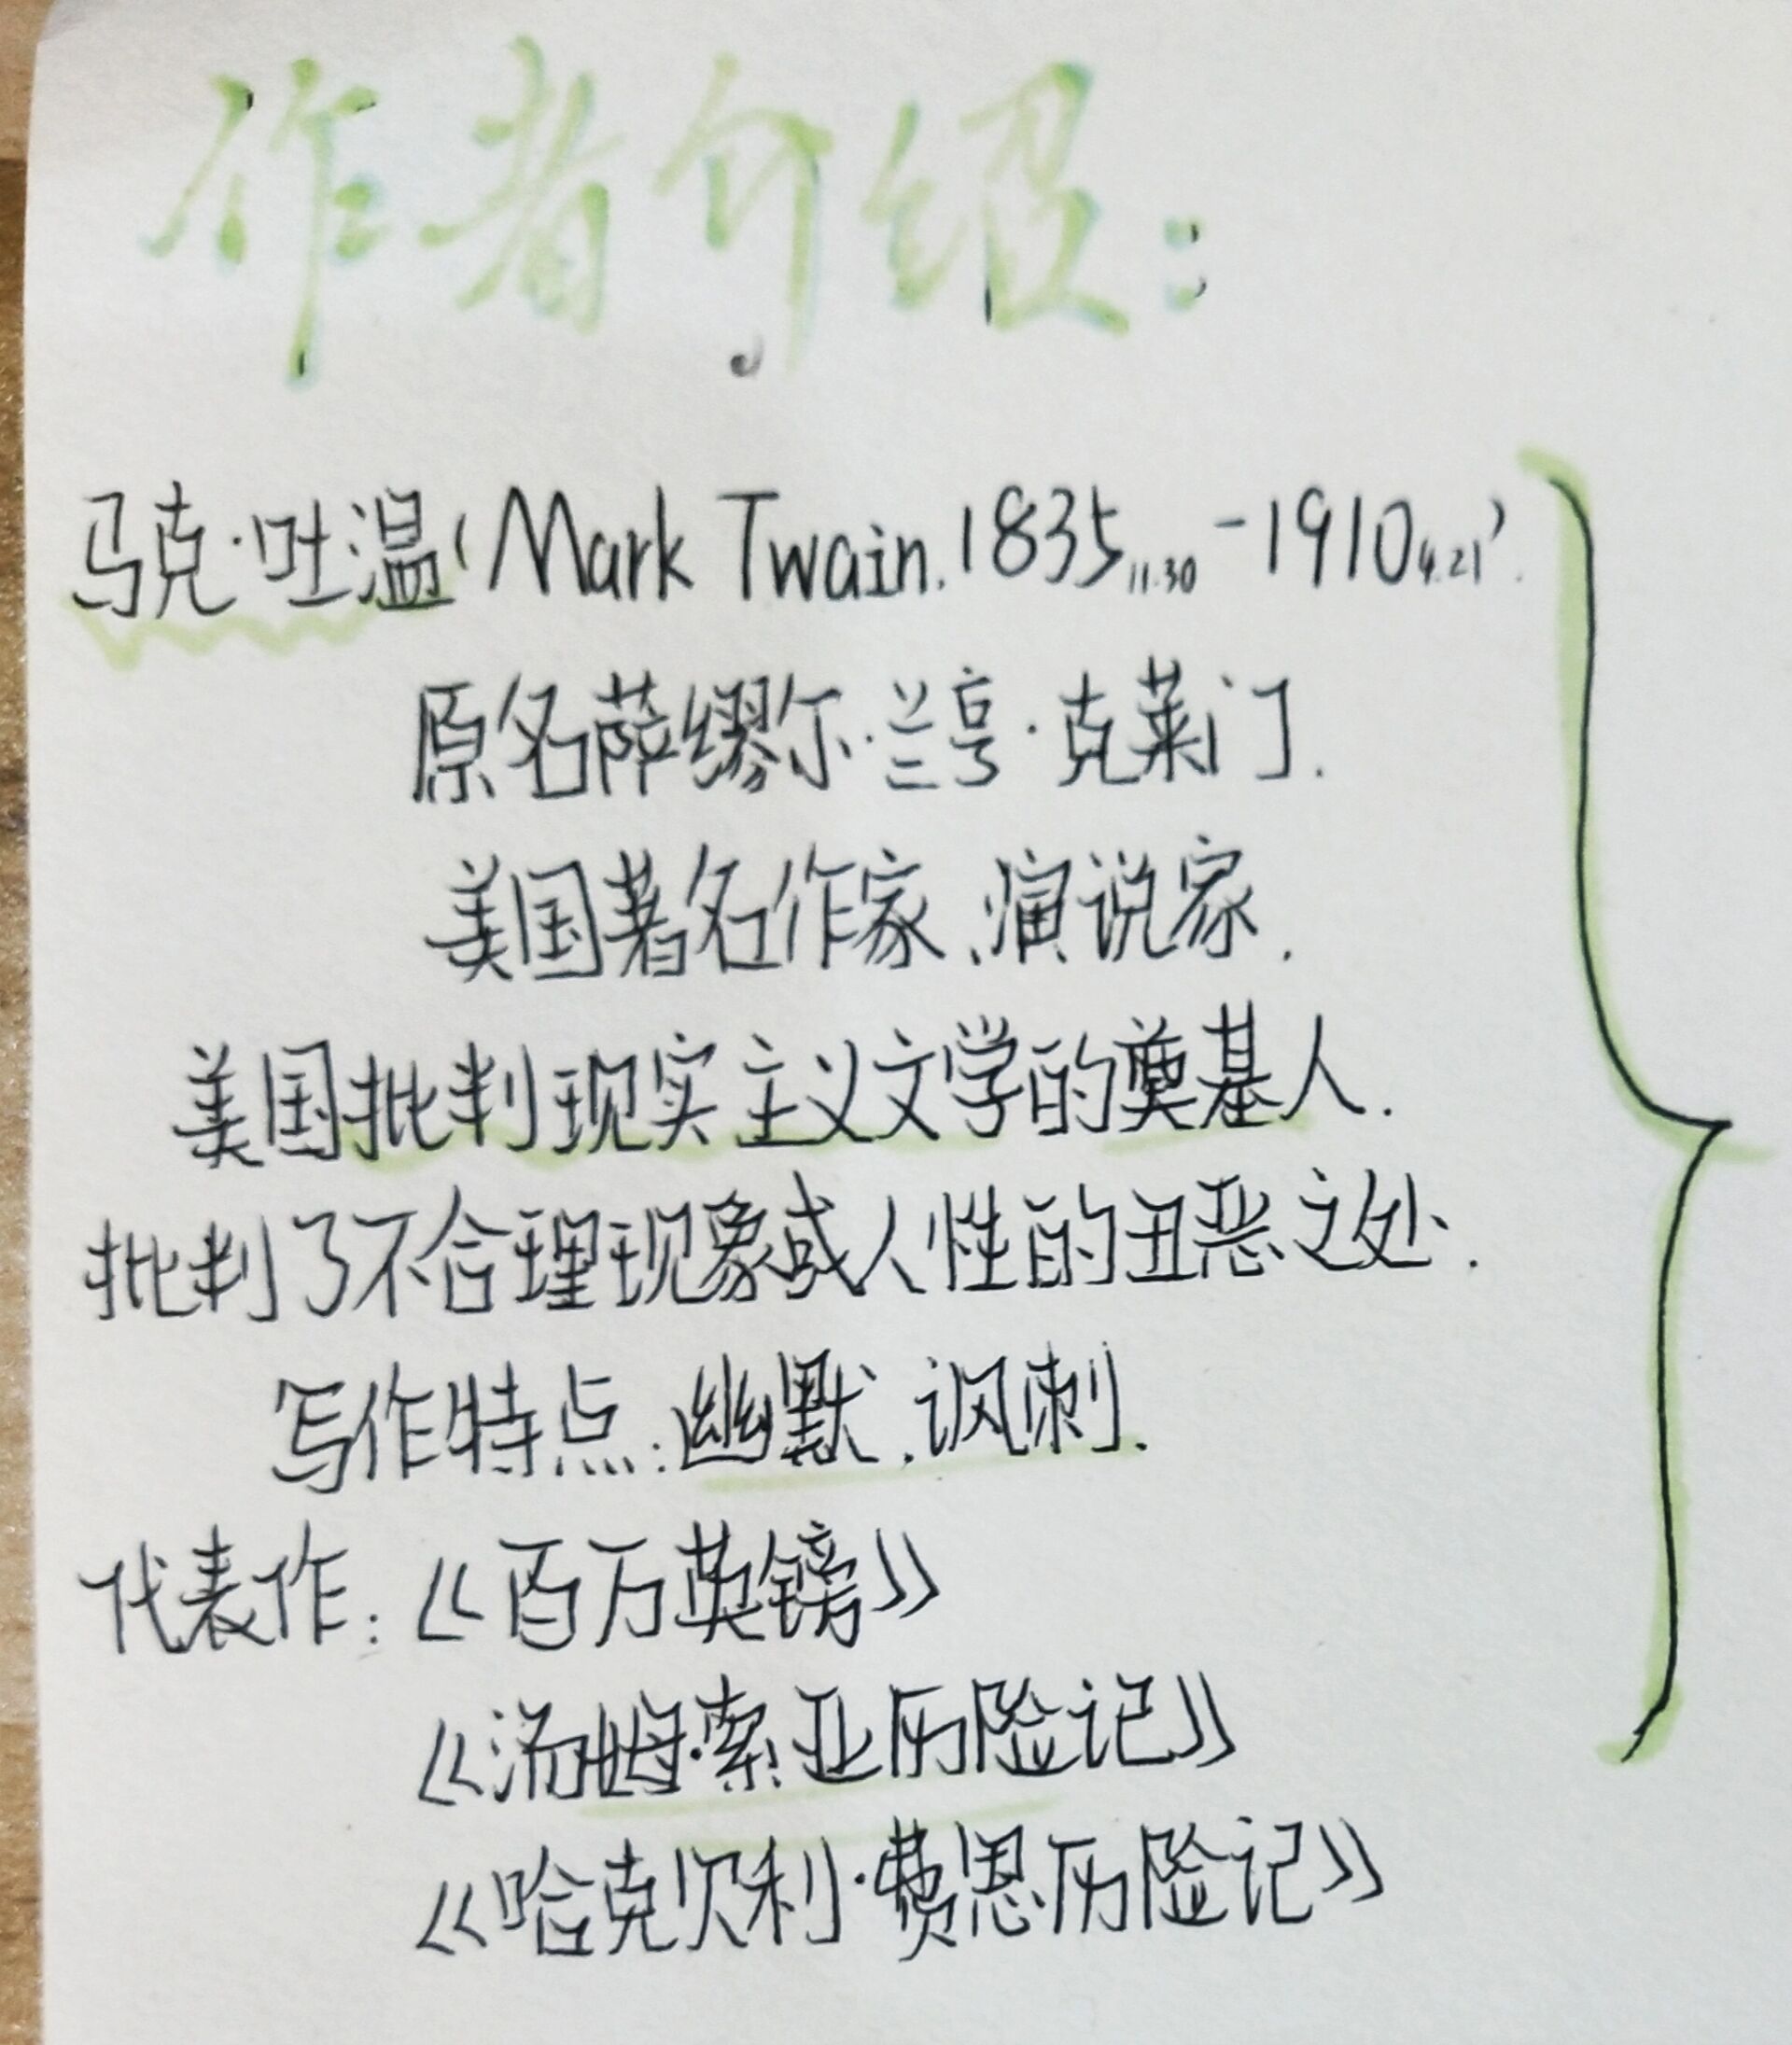 作者介绍：
马克·吐温(Mark Twain.1835.11.30-1910.4.21).
原名萨缪尔·兰亨·克莱门.
美国著名作家、演说家.
美国批判现实主义文学的奠基人.
批判了不合理现象或人性的丑恶之处.
写作特点：幽默、讽刺.
代表作：《百万英镑》
《汤姆·索亚历险记》
《哈克贝利·费恩历险记》